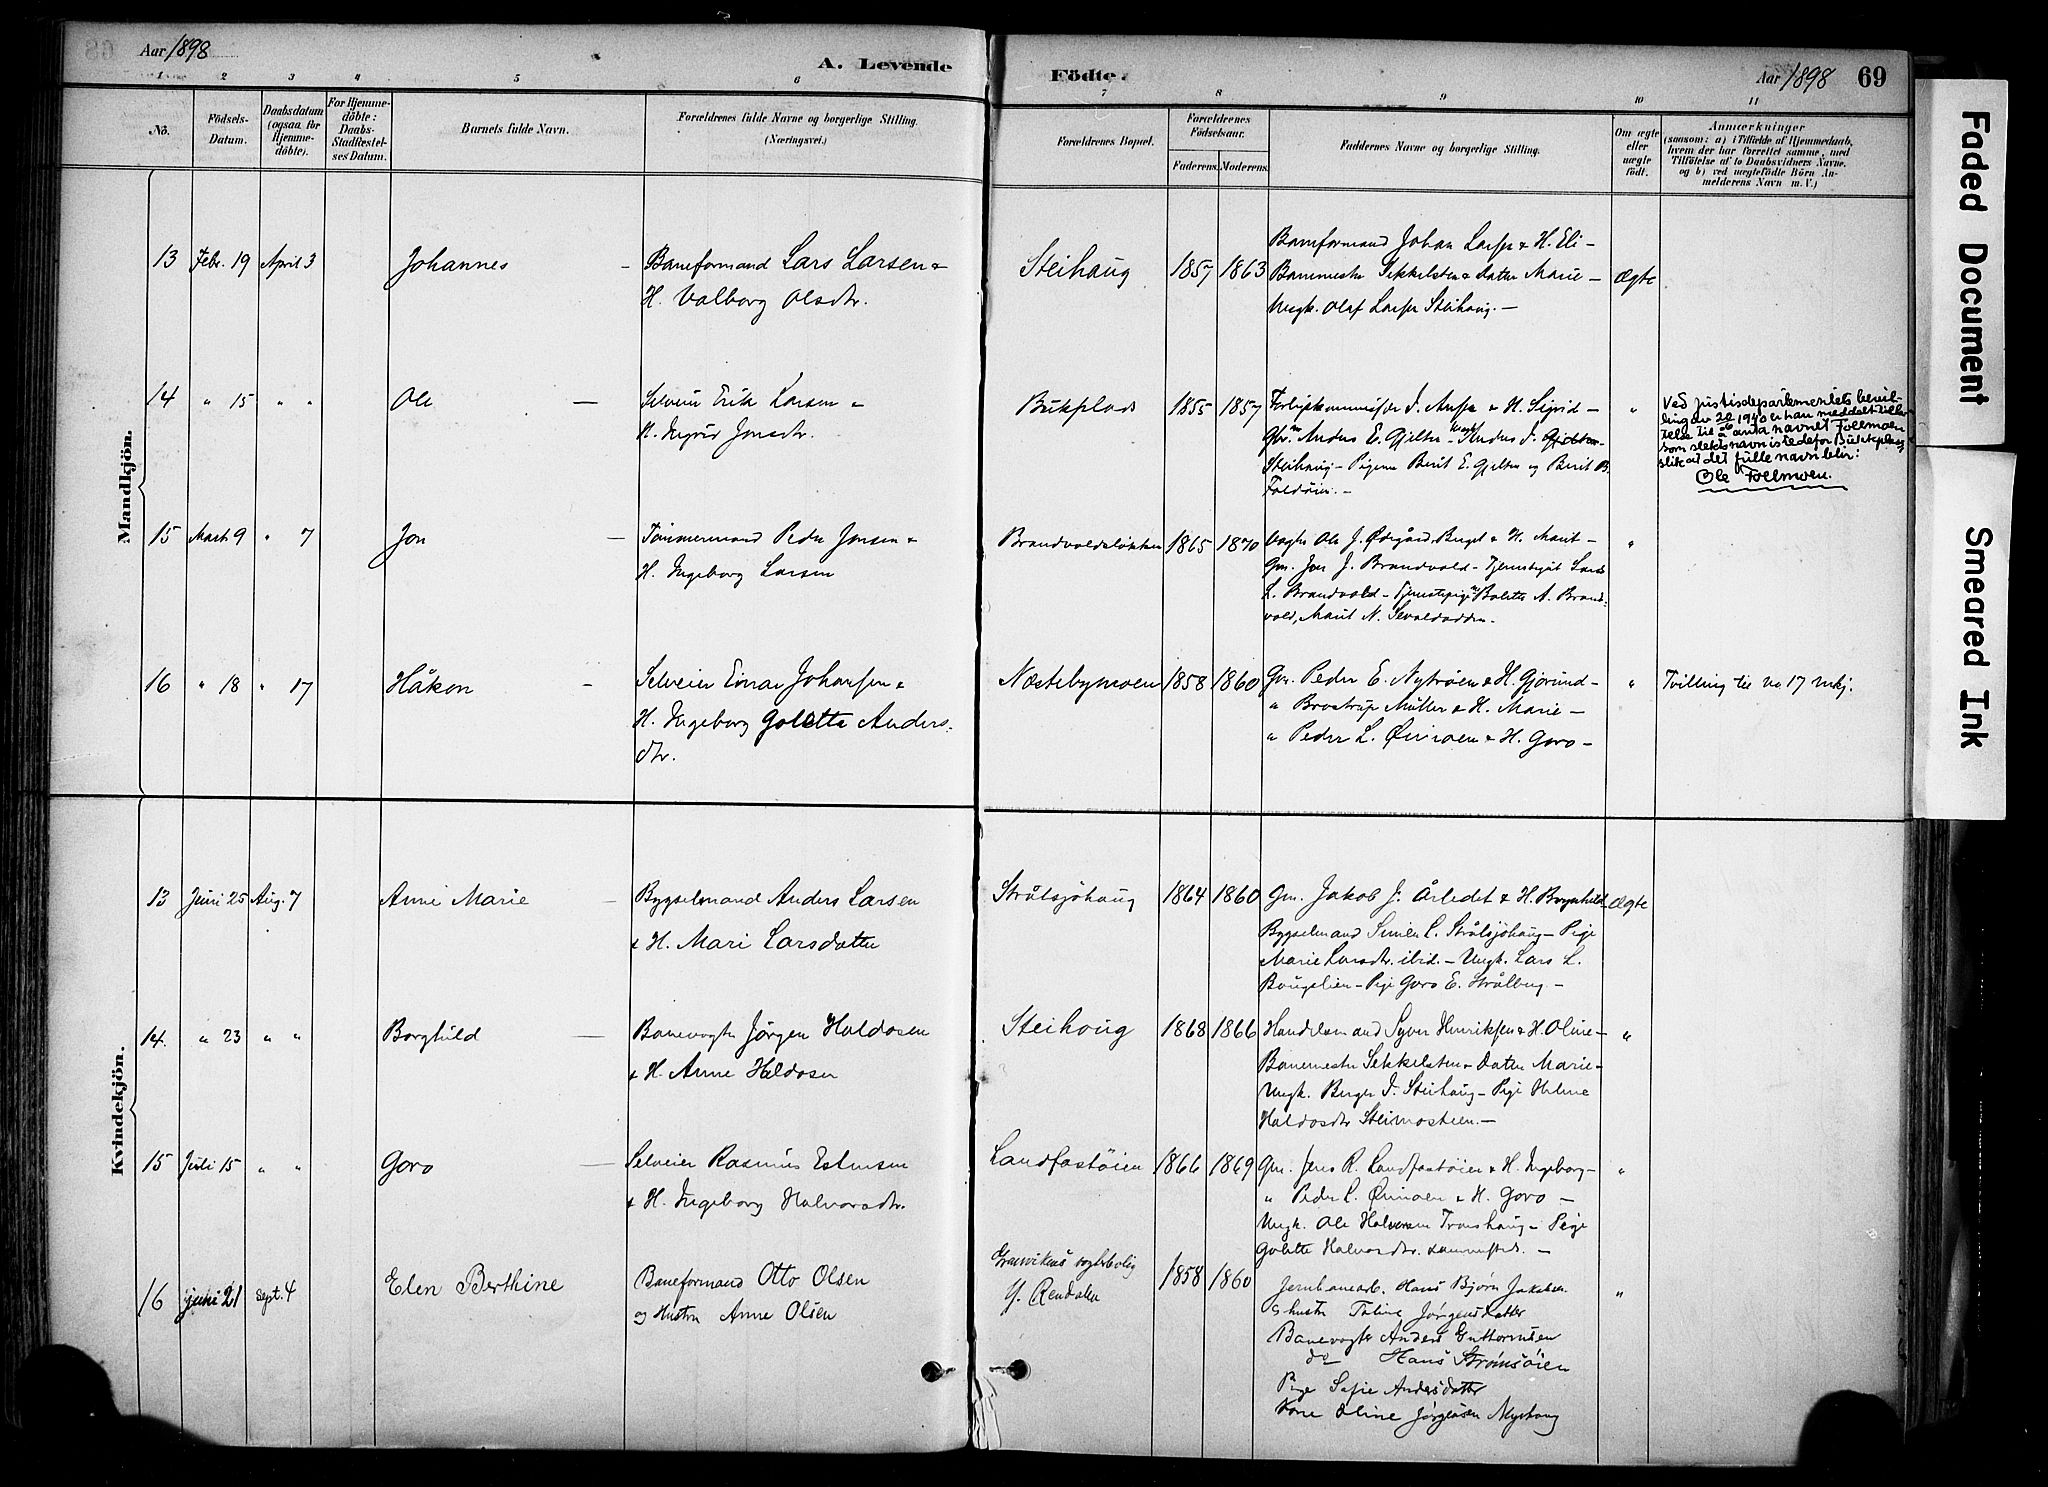 Aar 1898
A. Levende
Födte.
Aar 1898 69
1 2 3 4 5 6 7 8 9 10 11
No.
Födsels-Datum.
Daabsdatum (ogsaa for Hjemmedöbte).
For Hjemmedöbte: Daabs-Stadfæstelses Datum.
Barnets fulde Navn.
Forældrenes fulde Navne og borgerlige Stilling.
(Næringsvei.)
Forældrenes Bopæl.
Forældrenes Födselsaar.
Faderens. Moderens.
Faddernes Navne og borgerlige Stilling.
Om ægte eller uægte födt.
Anmærkninger
(saasom: a) i Tilfælde af Hjemmedaab,
hvem der har forrettet samme, med
Tilföielse af to Daabsvidners Navne.
og b) ved uægtefödte Börn An-
melderens Navn m. V.)
Mandkjön.
13 Febr. 19 April 3 Johannes – Baneformand Lars Larsen &
H. Valborg Olsdtr.
Steihaug 1857 1863
Baneformand Johan Larsen & H. Eli –
Banemester Sekkelsten & Datter Marie –
Ungk. Olaf Larsen Steihaug. –
Ægte
14 " 15 " " Ole – Selveier Erik Larsen &
H. Ingrid Jonsdtr.
Bukplads 1855 1857
H. Sigrid –
Anders E. Gjelten Anders J.
Steihaug – Pigerne Berit E. Gjelten og Berit B.
Foldöien. –
"
Ved justisdepartementets bevil-
ling av 20/6 1940 er han meddelt tilla-
telse til å anta navnet Follmoen
som slektsnavn istedefor Bukkplass,
slik at det fulle navn blir:
Ole Follmoen.
15 Marts 9 " 7 Jon – Tömmermand Peder Jonsen &
H. Ingeborg Larsen
Brandvoldslökken 1865 1870
Ole J. Ödegård, Berget & H. Marit –
Gm. Jon J. Brandvold – Tjenestegut Lars
L. Brandvold – Tjenestepige Bolette A. Brand-
vold, Marit N.
"
16 " 18 " 17 Håkon – Selveier Einar Johansen &
H. Ingeborg Golette Anders-
dtr.
Næstebymoen 1858 1860
Gm. Peder E. Nytröen & H. Gjörund –
" Brostrup Müller & H. Marie –
" Peder L. Öiimoen & H. Goro –
"
Tvilling til no 17 mkj.
Kvindekjön.
13 Juni 25 Aug. 7 Anne Marie – Bygselmand Anders Larsen
& H. Mari Larsdatter
Stråtsjöhaug 1864 1860
Gm. Jakob J. Årledet & H. Borghild –
Bygselmand Simen L. Stråtsjöhaug – Pige
Marie Larsdtr. ibid. – Ungk. Lars L.
Bangslien – Pige Goro E. Strålberg –
Ægte
14. " 23 " " Borghild – Banevogter Jörgen Haldosen
& H. Anne Haldosen
Steihaug 1868 1866
Handelsmand Syver Henriksen & H. Oline –
Banemester Sekkelsten & Datter Marie –
Ungk. Birger J. Steihaug – Pige Helene
Haldosdtr Steimosteen. –
"
15 Juli 15 " " Goro – Selveier Rasmus Estensen
& H. Ingeborg Halvorsdtr.
Landfastöien 1866 1869
Gm. Jens R. Landfastöien & H. Ingeborg –
" Peder L. Öiimoen & H. Goro –
Ungk. Ole Halvorsen Tronshaug – Pige
Golette Halvorsdtr. sammested. –
"
16 juni 21 Sept. 4 Elen Berthine Baneformand Otto Olsen
og Hustru Anne Olsen
vogterbolig
Y. Rendalen
1858 1860
Jernbanearb. Hans Björn Jakobsen
& hustr Taline Jörgensdatter
Banevogter Anders Guttormsen
do Hans Strömsöien
Pige Sofie Andersdatter
Kone Oline Jörgensen Myrhaug
"
Faded Document
Smeared Ink